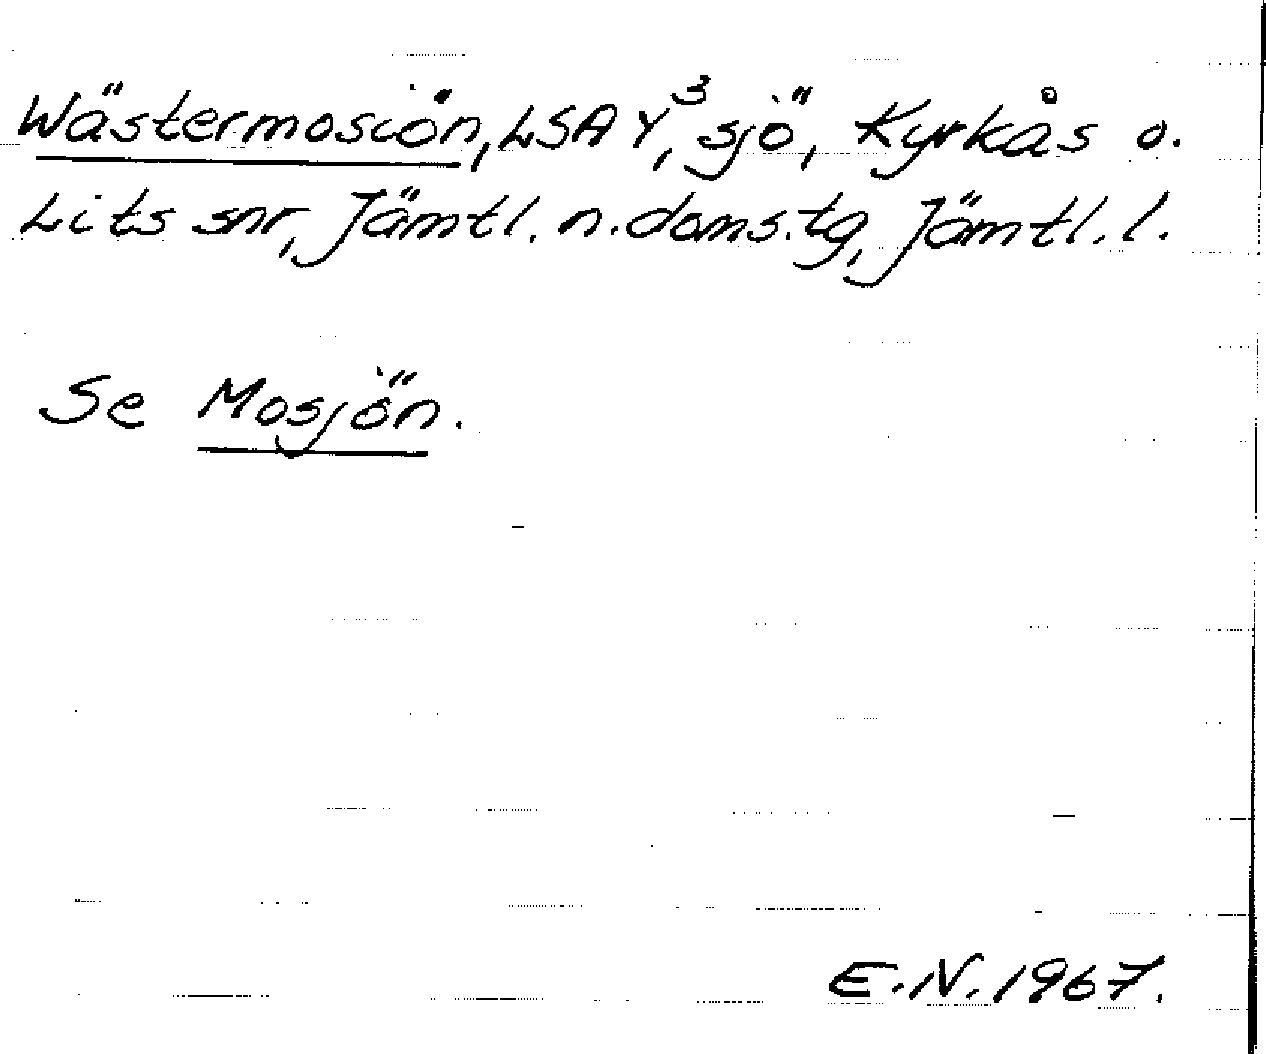 Wästermosiön, LSA Y³, sjö, Kyrkås o.
Lits snr, Jämtl. n. doms.tg, Jämtl. l.
Se Mosjön.
E.N. 1967.